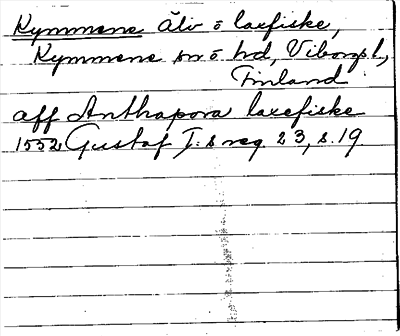 Kymmene älv o laxfiske,
Kymmene sn o hd, Viborgs l,
Finland
aff Anthapora laxefiske
1552 Gustaf I:s reg 23, s. 19.